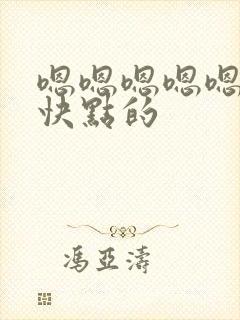 嗯嗯嗯嗯嗯
快點的
馮亞濤